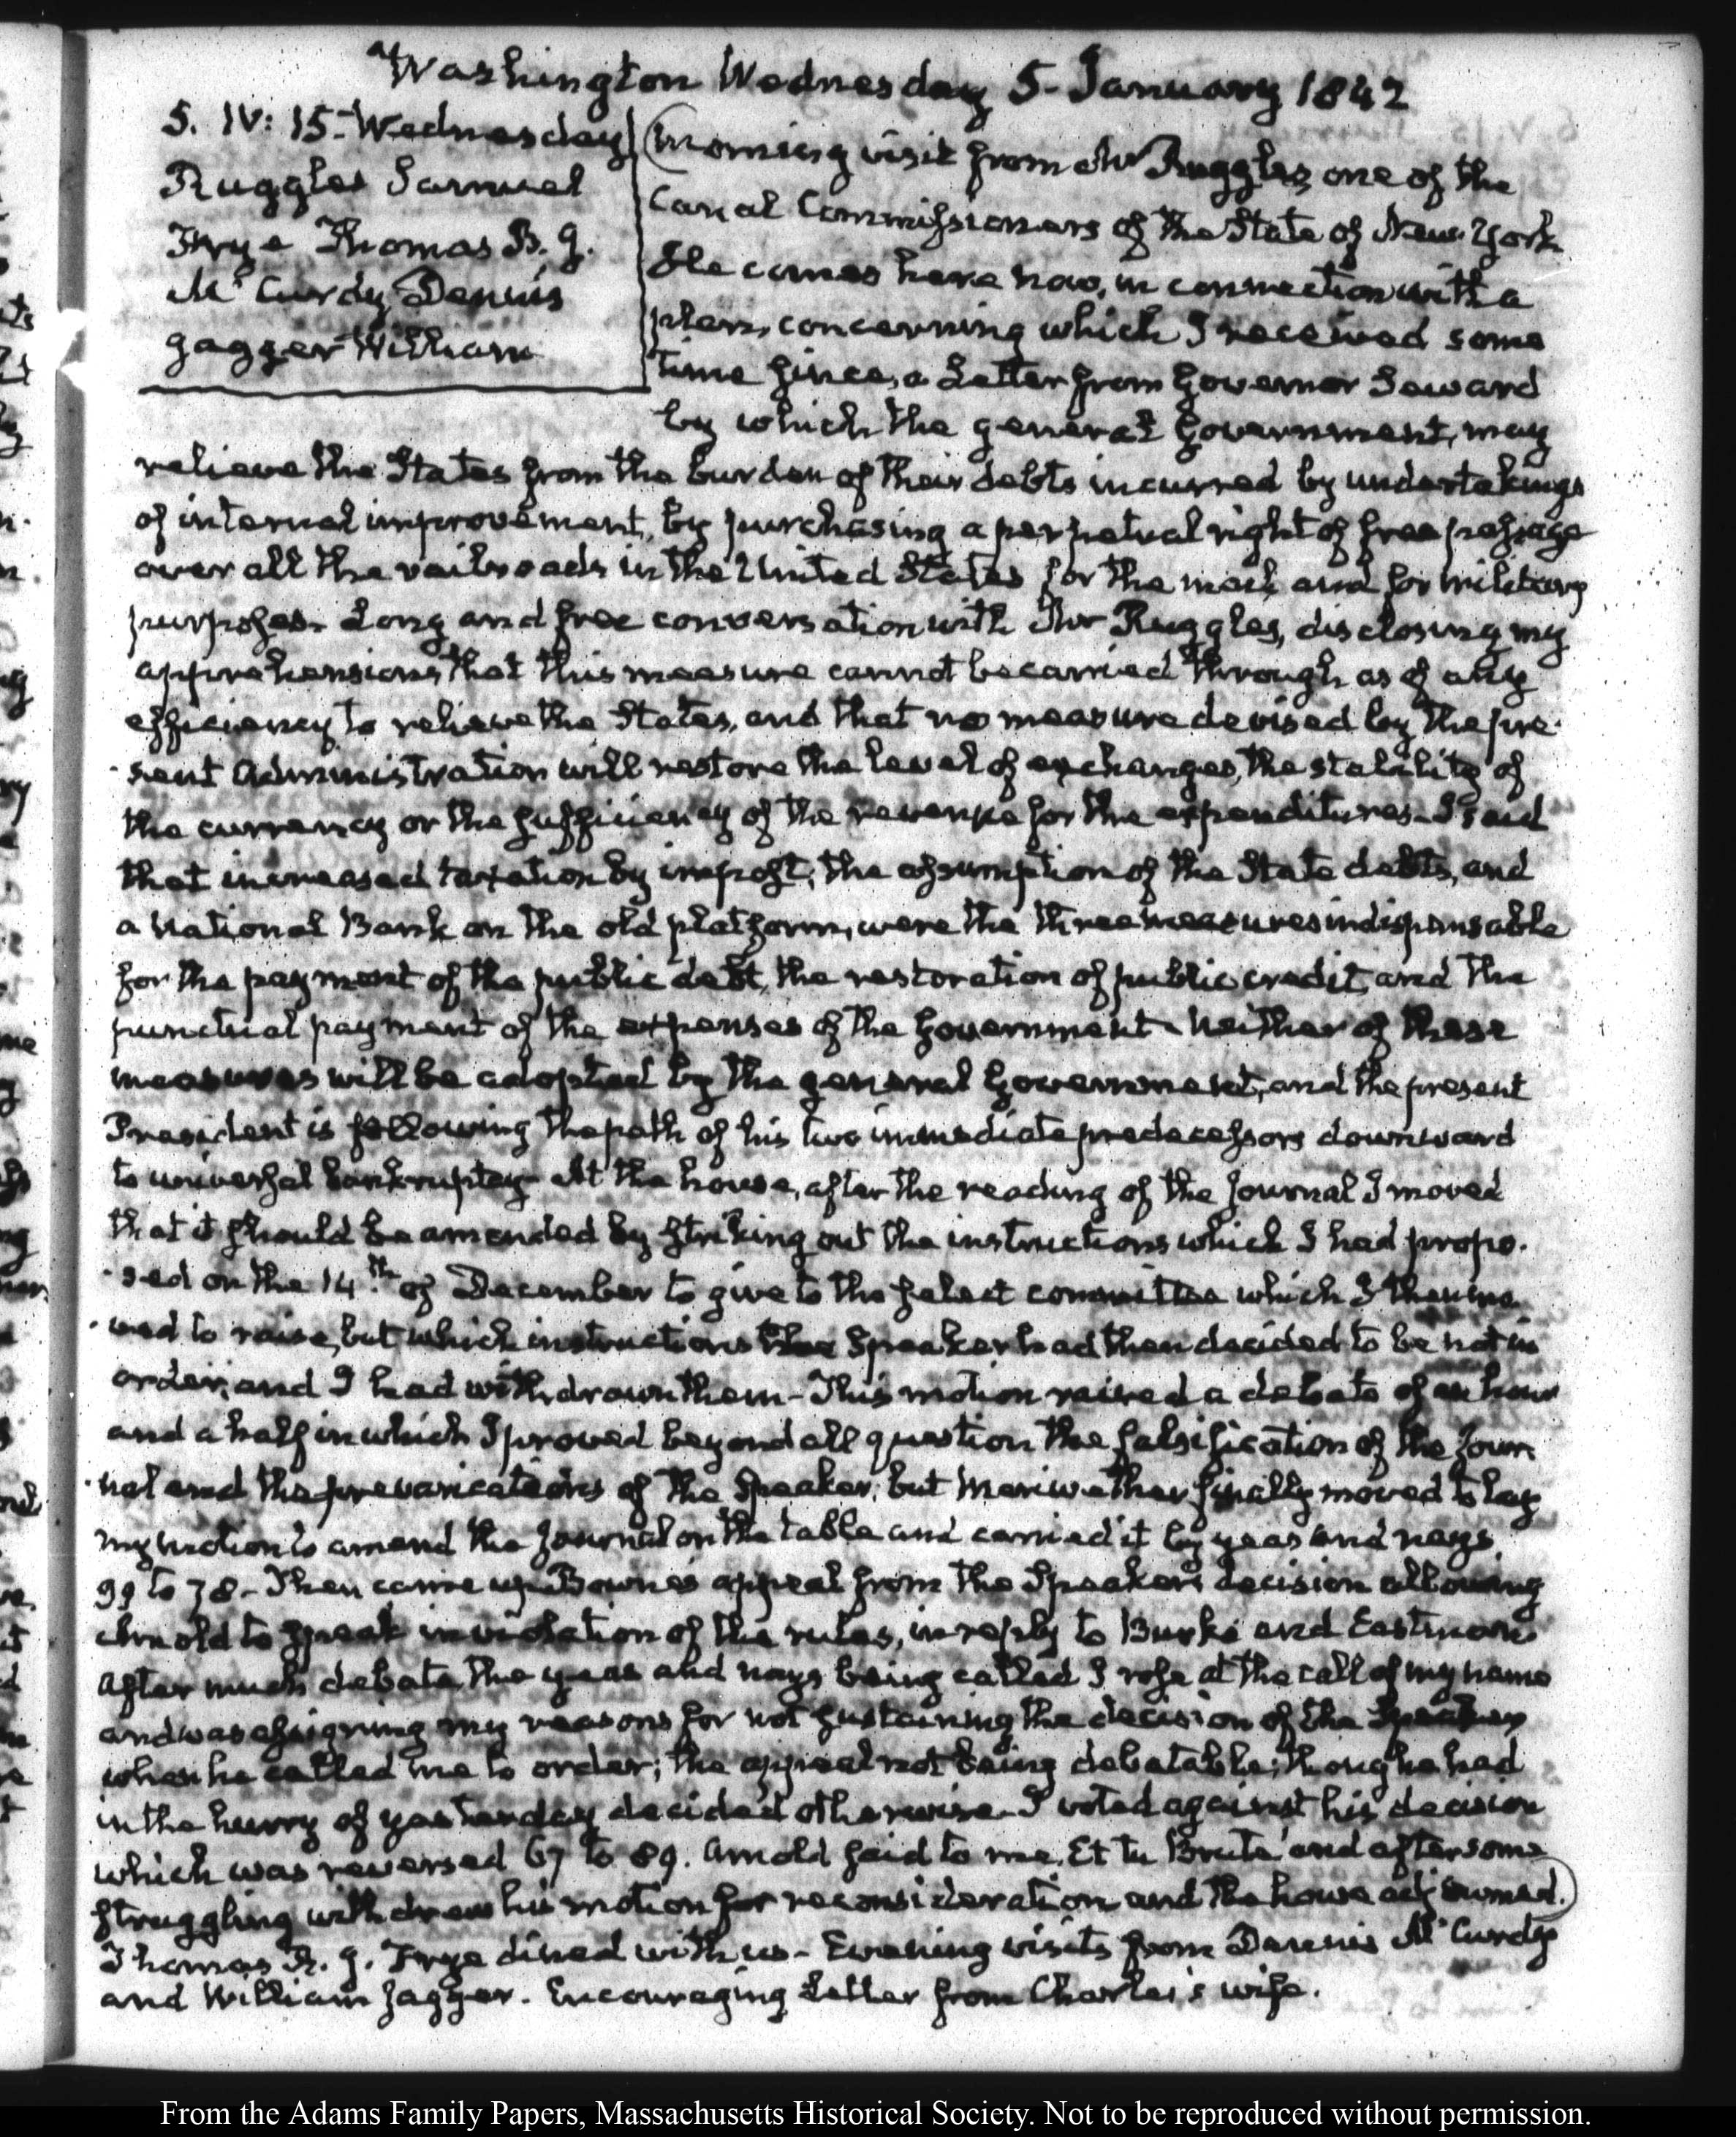 Washington Wednesday 5. January 1842
5. IV: 15. Wednesday
Ruggles Samuel
Frye Thomas B. J.
McCurdy Dennis
Jagger William
Morning visit from Mr Ruggles, one of the
Canal Commissioners of the State of New-York
He comes here now, in connection with a
plan, concerning which I received some
time since, a Letter from Governor Seward
by which the general Government, may
relieve the States from the burden of their debts incurred by undertakings
of internal improvement, by purchasing a perpetual right of free passage
over all the railroads in the United States for the mail and for military
purposes. Long and free conversation with Mr Ruggles, disclosing my
apprehensions that this measure cannot be carried through as of any
efficiency to relieve the States, and that no measure devised by the pre-
-sent Administration will restore the level of exchanges, the stability of
the currency or the sufficiency of the revenue for the expenditures. I said
that increased taxation by impost, the assumption of the State debts, and
a National Bank on the old platform, were the three measures indispensable
for the payment of the public debt, the restoration of public credit, and the
punctual payment of the expenses of the Government. Neither of these
measures will be adopted by the general Government, and the present
President is following the path of his two immediate predecessors downward
to universal bankruptcy- At the house, after the reading of the Journal I moved
that it should be amended by striking out the instructions which I had propo-
-sed on the 14.th of December to give to the select committee which I then mo-
-ved to raise, but which instructions the Speaker had then decided to be not in
order, and I had withdrawn them- This motion raised a debate of an hour
and a half in which I proved beyond all question the falsification of the Jour-
-nal and the prevarications of the Speaker, but Meriwether finally moved to lay
my motion to amend the Journal on the table and carried it by yeas and nays
99 to 78- Then came up Bowne's appeal from the Speaker's decision allowing
Arnold to speak in violation of the rules, in reply to Burke and Eastman
After much debate, the yeas and nays being called I rose at the call of my name
and was assigning my reasons for not sustaining the decision of the Speaker
when he called me to order; the appeal not being debatable; though he had
in the hurry of yesterday decided otherwise- I voted against his decision
which was reversed 67 to 89. Arnold said to me, Et tu Brute' and after some
struggling withdrew his motion for reconsideration and the house adjourned.)
Thomas B. J. Frye dined with us- Evening visits from Dennis McCurdy
and William Jagger. Encouraging Letter from Charles's wife.
From the Adams Family Papers, Massachusetts Historical Society. Not to be reproduced without permission.